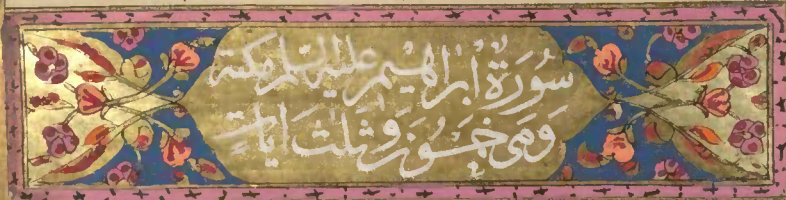 سورة ابراهيم عليه السلم مكية
وهي خمسون وثلث ايات